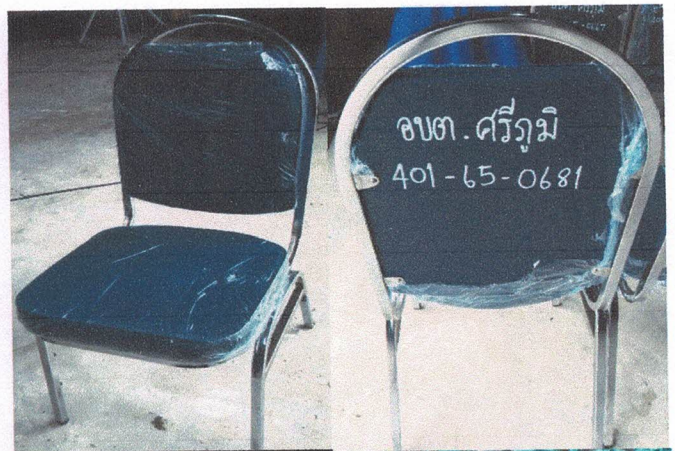 อบต.ศรีภูมิ
401-65-0681